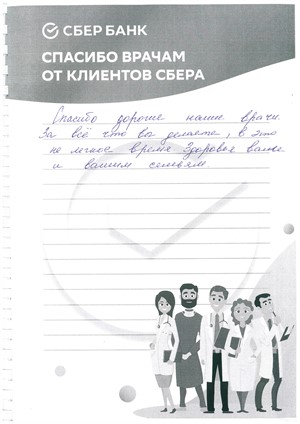 СБЕР БАНК
СПАСИБО ВРАЧАМ
ОТ КЛИЕНТОВ СБЕРА
Спасибо дорогие наши врачи.
За всё что вы делаете, в это
не легкое время Здоровья вам
и вашим семьям